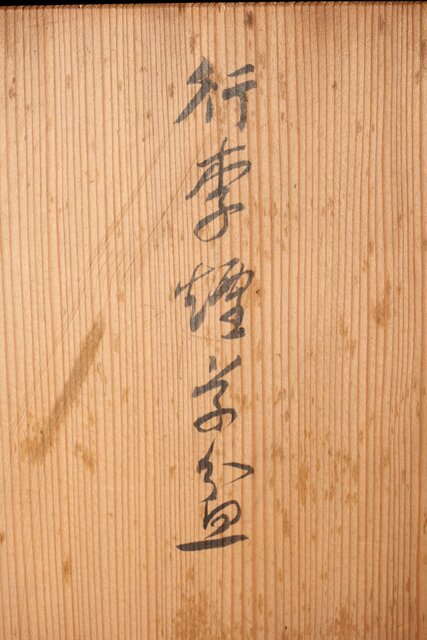 行李煙草盆